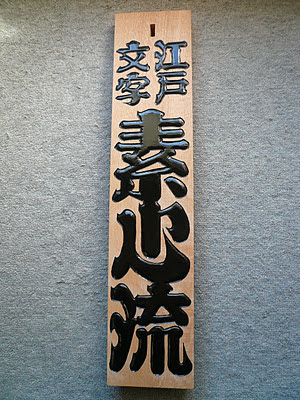 江戸
文字
素心流